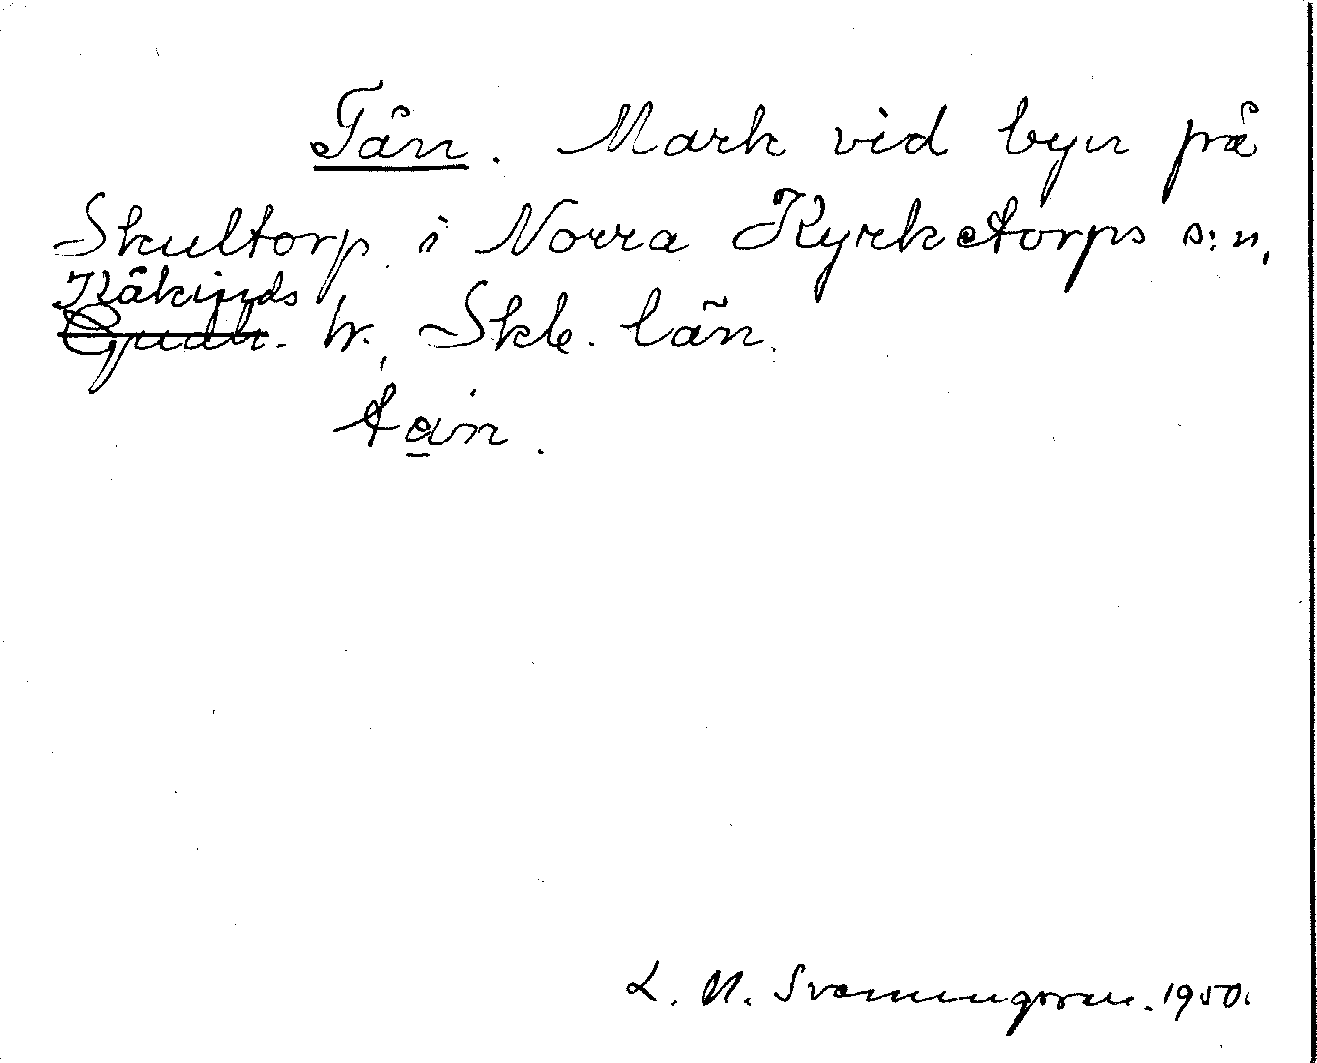 Tån. Mark vid byn på
Skultorp i Norra Kyrketorps s:n,
Kåkinds
Gudh. hr. Skb. län.
tån.
L. N. Svanungsson. 1950.